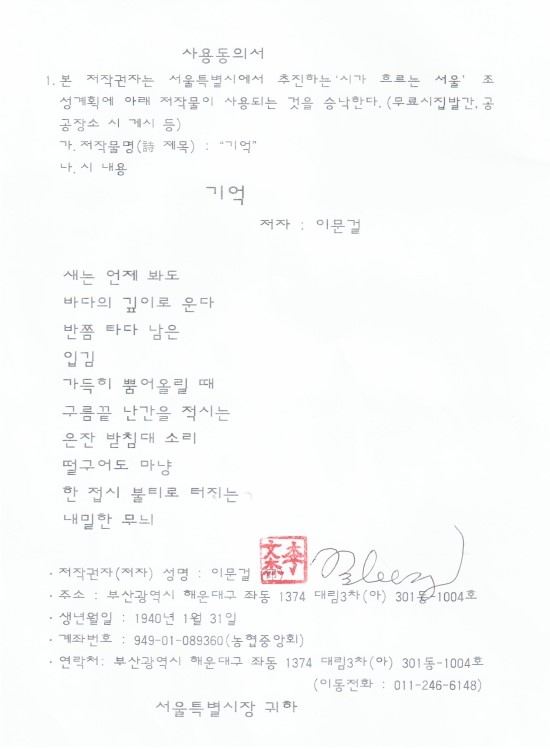 사용동의서
1. 본 저작권자는 서울특별시에서 추진하는 '시가 흐르는 서울' 조
성계획에 아래 저작물이 사용되는 것을 승낙한다. (무료시집발간, 공
공장소 시 게시 등)
가. 저작물명(詩 제목) : "기억"
나. 시 내용
기억
저자 : 이문걸
새는 언제 봐도
바다의 깊이로 운다
반쯤 타다 남은
입김
가득히 뿜어올릴 때
구름끝 난간을 적시는
은잔 받침대 소리
떨구어도 마냥
한 접시 불티로 터지는
내밀한 무늬
· 저작권자(저자) 성명 : 이문걸
· 주소 : 부산광역시 해운대구 좌동 1374 대림3차(아) 301동-1004호
· 생년월일 : 1940년 1월 31일
· 계좌번호 : 949-01-089360(농협중앙회)
· 연락처: 부산광역시 해운대구 좌동 1374 대림3차(아) 301동-1004호
(이동전화 : 011-246-6148)
서울특별시장 귀하